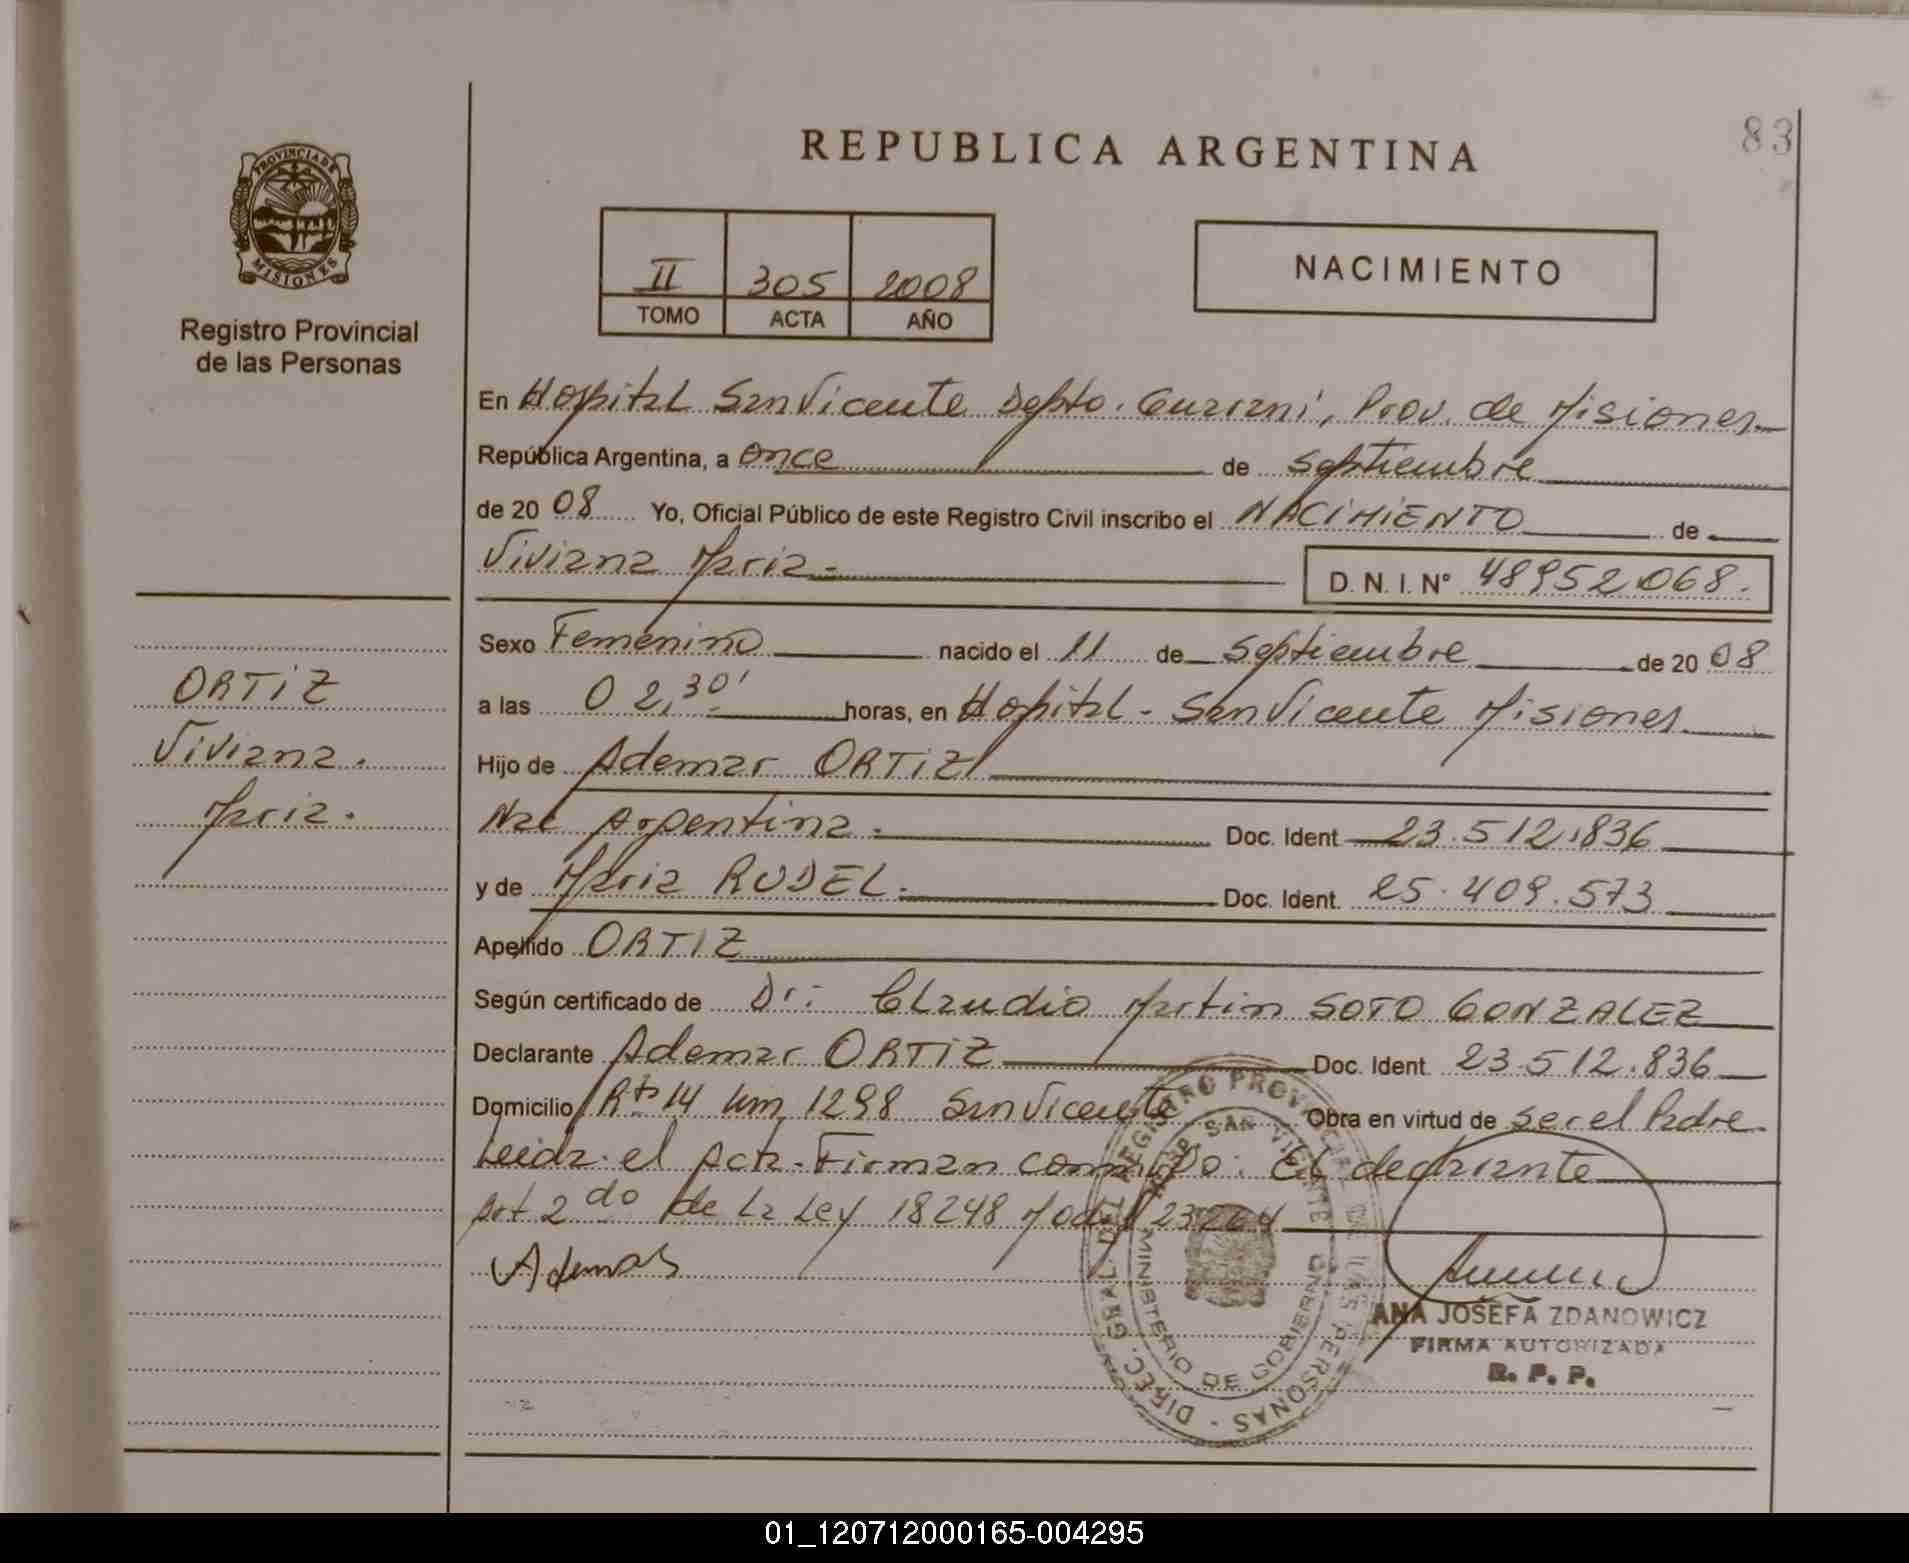 83
REPUBLICA ARGENTINA
PROVINCIA DE
MISIONES
Registro Provincial
de las Personas
II 305 2008
TOMO ACTA AÑO
NACIMIENTO
En Hospital San Vicente Depto. Guarani, Prov. de Misiones
República Argentina, a once de septiembre
de 2008 Yo, Oficial Público de este Registro Civil inscribo el NACIMIENTO de
Viviana Maria.- D. N. I. N° 48952.068.
Sexo Femenino nacido el 11 de septiembre de 2008
a las 02,30' horas, en Hospital - San Vicente Misiones
Hijo de Ademar ORTIZ
Nac Argentina. Doc. Ident 23.512.836
y de Maria RUDEL. Doc. Ident. 25.409.573
Apellido ORTIZ
Según certificado de Dr: Claudio Martin SOTO GONZALEZ
Declarante Ademar ORTIZ Doc. Ident. 23.512.836
Domicilio Rta 14 km 1298 San Vicente Obra en virtud de ser el Padre
Leida el Acta-Firman conmigo: El declarante
Art 2do de la Ley 18248 Mod 23264
Ademar
ORTIZ
Viviana.
Maria.
DIREC. GRAL. DEL REGISTRO PROVINCIAL DE LAS PERSONAS
SAN VICENTE
MINISTERIO DE GOBIERNO
ANA JOSEFA ZDANOWICZ
FIRMA AUTORIZADA
R. P. P.
01_120712000165-004295